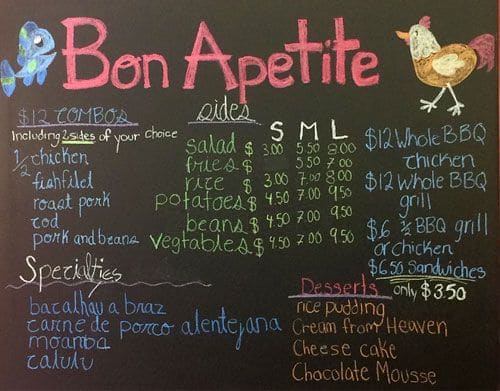 Bon Apetite
$12 COMBO's
Including 2 sides of your choice
1/2 chicken
fishfilet
roast pork
cod
pork and beans
sides
S M L
salad $ 3.00 5.50 8.00
fries $ 5.50 7.00
rice $ 3.00 7.00 8.00
potatoes $ 4.50 7.00 9.50
beans $ 4.50 7.00 9.50
vegtables $ 4.50 7.00 9.50
$12 Whole BBQ
chicken
$12 Whole BBQ
grill
$6 ½ BBQ grill
or chicken
$6.50 Sandwiches
Specialties
bacalhau a braz
carne de porco alentejana
moamba
calulu
Desserts only $3.50
rice pudding
Cream from Heaven
Cheese cake
Chocolate Mousse